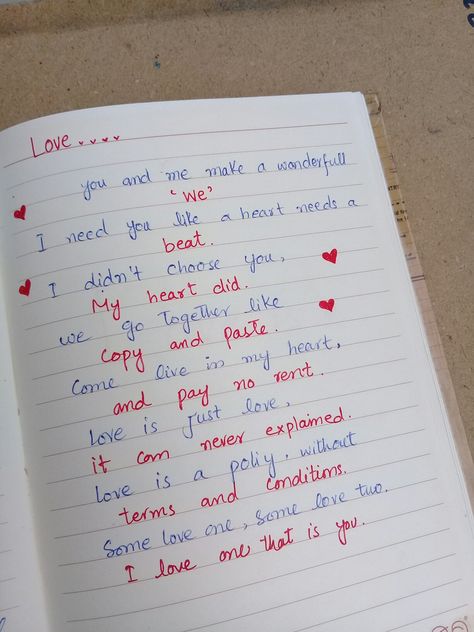 Love....
you and me make a wonderfull
'we'
I need you like a heart needs a
beat.
I didn't choose you,
My heart did.
we go together like
copy and paste.
Come live in my heart,
and pay no rent.
Love is just love,
it can never explained.
Love is a poliy, without
terms and conditions.
Some love one, some love two.
I love one that is you.